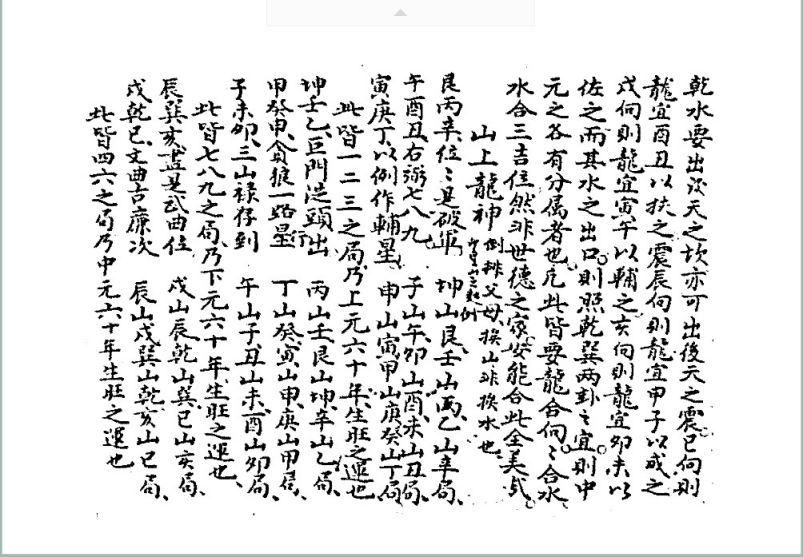 乾水要出後天之坎亦可出後天之震巳向則
龍宜酉丑以扶之震辰向則龍宜甲子以成之
戌向則龍宜寅午以輔之亥向則龍宜卯未以
佐之而其水之出口則照乾巽兩卦之宜則中
元之各有分属者也凡此皆要龍合向向合水
水合三吉位然非世德之家安能合此全美弍
山上龍神 倒排父母挨山非挨水也
艮丙辛位位是破軍 坤山艮壬山丙乙山辛局
午酉丑右弼七八九 子山午卯山酉未山丑局
寅庚丁以例作輔星 申山寅甲山庚癸山丁局
此皆一二三之局乃上元六十年生旺之運也
坤壬乙巨門從頭出 丙山壬艮山坤辛山乙局
甲癸申貪狼一路星行 丁山癸寅山申庚山甲局
子未卯三山祿存到 午山子丑山未酉山卯局
此皆七八九之局乃下元六十年生旺之運也
辰巽亥盡是武曲位 戌山辰乾山巽巳山亥局
戌乾巳文曲古廉次 辰山戌巽山乾亥山巳局
此皆四六之局乃中元六十年生旺之運也